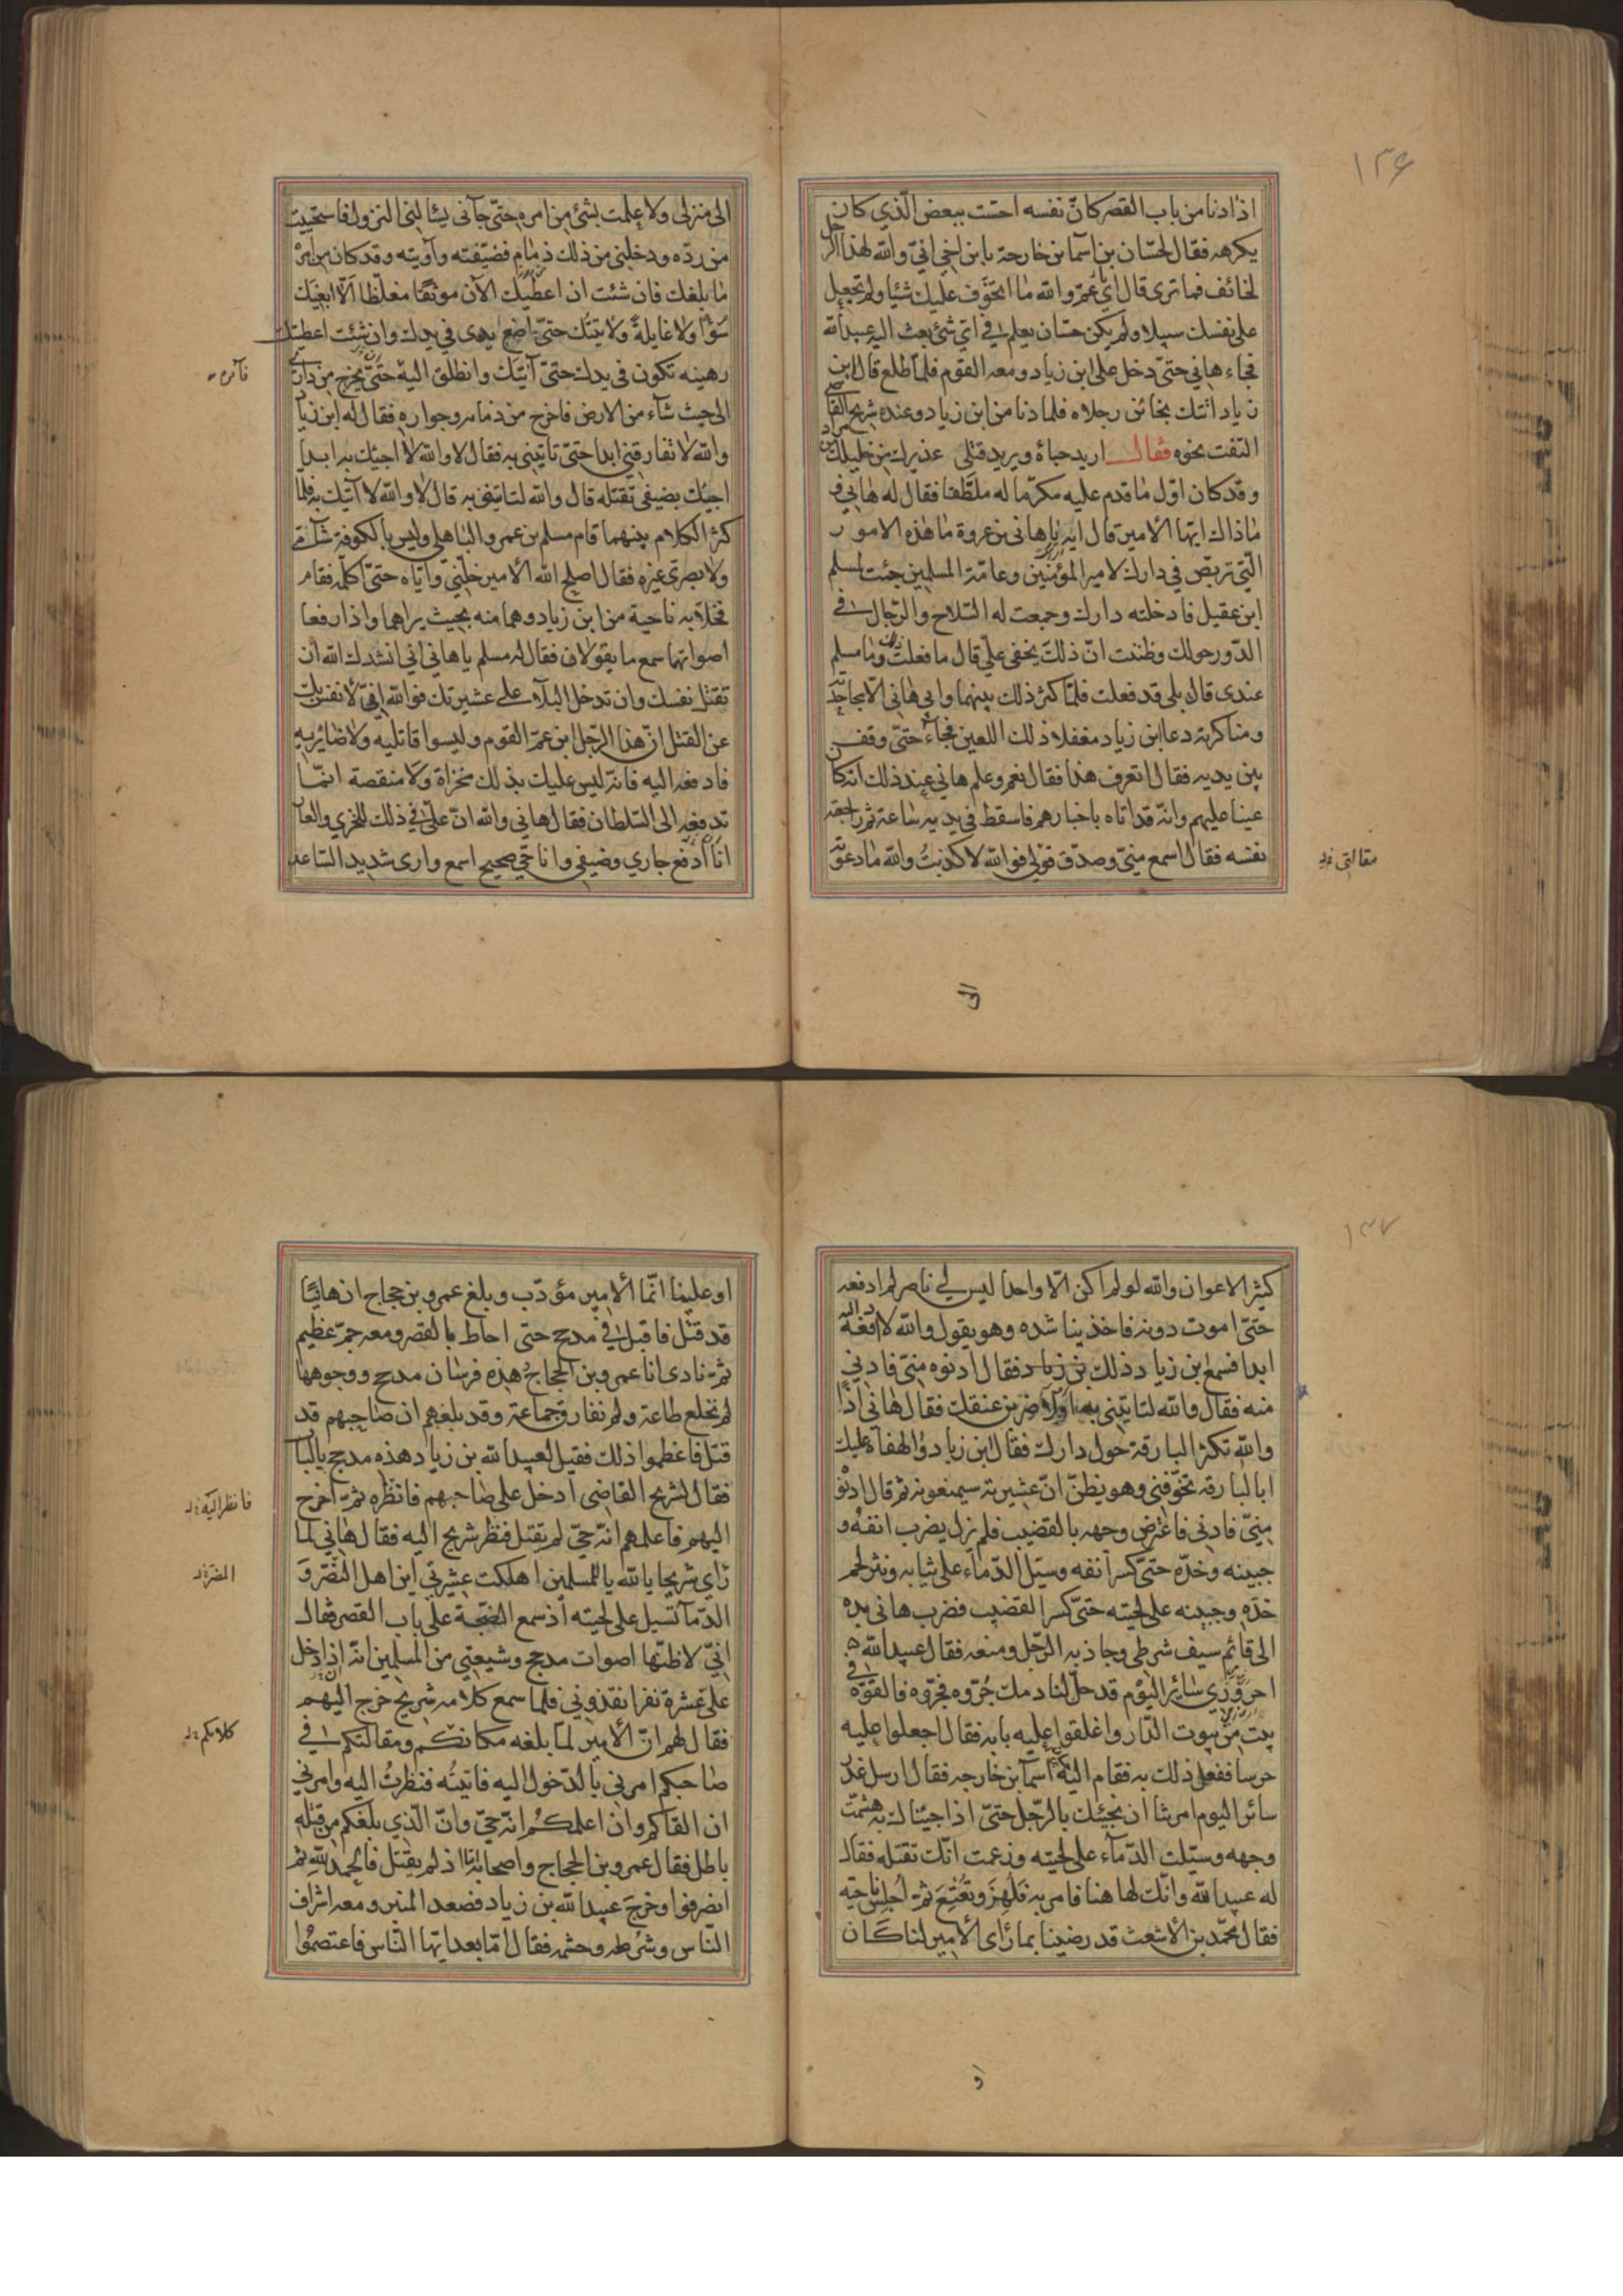 ١٣۶
اذا دنا من باب القصر كانّ نفسه احست ببعض الّذي كان
يكرهه فقال لحسّان بن اسما بن خارجة يا بن اخي انيّ والله لهذا الرّجل
لخائف فما ترى قال اي عمّ والله ما اتخوّف عليك شيئا ولم تجعل
على نفسك سبيلا ولم يكن حسّان يعلم في ايّ شئ بعث اليه عبيد الله
فجاء هاني حتىّ دخل على ابن زياد ومعه القوم فلمّا طلع قال ابن
زياد اتتك بخائن رجلاه فلما دنا من ابن زياد وعنده شريح القاضي
التفت نحوه فقال اريد حباءه ويريد قتلي عذيرك من خليلك من مراد
وقد كان اوّل ما قدم عليه مكرّما له ملطّفا فقال له هاني و
ما ذاك ايّها الأمير قال ايه يا هاني بن عروة ما هذه الامور
الّتي تربّص في دارك لامير المؤمنين وعامّة المسلمين جئت بمسلم
ابن عقيل فادخلته دارك وجمعت له السّلاح والرّجال في
الدّور حولك وظننت انّ ذلك يخفى عليّ قال ما فعلت ذلك وما مسلم
عندى قال بلى قد فعلت فلمّا كثر ذلك بينهما وابى هاني الاّ مجاحدته
ومناكرته دعا ابن زياد معقلا ذلك اللعين فجاء حتىّ وقف
بين يديه فقال اتعرف هذا فقال نعم وعلم هاني عند ذلك انه كان
عينا عليهم وانّه قد اتاه باخبارهم فاسقط في يديه ساعة ثم راجعته
نفسه فقال اسمع منيّ وصدّق قولي فوالله لا كذبتُ والله ما دعوته
مقالتي
الى
الى منزلى ولا علمت بشئ من امره حتىّ جآءنى يسألنى النزول فاستحييت
من ردّه ودخلني من ذلك ذمام فضيّفته وآويته وقد كان من امره
ما بلغك فان شئت ان اعطيك الآن موثقا مغلّظا الّا ابغيك
سوءًا ولا غايلة ولآتينّك حتىّ اضع يدى في يدك وان شئت اعطيتك
رهينه تكون في يدك حتىّ آتيك وانطلق اليه حتىّ يخرج من داري
فآمره
الى حيث شآء من الارض فاخرج من ذمامه وجواره فقال له ابن زياد
والله لا تفارقني ابدا حتىّ تاتيني به فقال لا والله لا اجيئك به ابدا
اجيئك بضيفي تقتله قال والله لتاتيني به قال لا والله لا آتيك به فلما
كثر الكلام بينهما قام مسلم بن عمرو الباهلي وليس بالكوفة شآميّ
ولا بصريّ غيره فقال اصلح الله الأمير خلّني وايّاه حتىّ اكلّمه فقام
فخلا به ناحية من ابن زياد وهما منه بحيث يراهما واذا رفعا
اصواتهما سمع ما يقولان فقال له مسلم يا هاني انّي انشدك الله ان
تقتل نفسك وان تدخل البلآء على عشيرتك فوالله انيّ لأنفس بك
عن القتل انّ هذا الرّجل ابن عمّ القوم وليسوا قاتليه ولا ضائريه
فادفعه اليه فانّه ليس عليك بذلك مخزاة ولا منقصة انمّا
تدفعه الى السّلطان فقال هاني والله انّ عليّ في ذلك للخزي والعار
انا ادفع جاري وضيفي وانا حيّ صحيح اسمع وارى شديد السّاعد
١٣٧
كثير الاعوان والله لو لم اكن الاّ واحدا ليس لي ناصر لم ادفعه
حتىّ اموت دونه فاخذ يناشده وهو يقول والله لا ادفعه اليه
ابدا فسمع بن زياد ذلك بن زياد فقال ادنوه منيّ فادني
منه فقال والله لتاتيني به او لاضربن عنقك فقال هاني اذًا
والله تكثر البارقة حول دارك فقال ابن زياد والهفاه عليك
ابا لبارقه تخوّفني وهو يظنّ انّ عشيرته سيمنعونه ثم قال ادنوه
منيّ فادني فاعترض وجهه بالقضيب فلم يزل يضرب انفه و
جبينه وخدّه حتىّ كسر انفه وسيّل الدّماء على ثيابه ونثر لحم
خدّه وجبينه على لحيته حتىّ كسر القضيب فضرب هاني يده
الى قائم سيف شرطي وجاذبه الرّجل ومنعه فقال عبيد الله
احروريّ سائر اليوم قد حلّ لنا دمك جُرّوه فجرّوه فالقوه في
بيت من بيوت الدّار واغلقوا عليه بابه فقال اجعلوا عليه
حرسا ففعل ذلك به فقام اليه اسما بن خارجه فقال ارسل غدر
سائر اليوم امرتنا ان نجيئك بالرّجل حتىّ اذا جيئناك به هشمت
وجهه وسيّلت الدّمآء على لحيته وزعمت انّك تقتله فقال
له عبيد الله وانّك لها هنا فامر به فلُهِزَ وتُعْتِعَ ثمّ اُجلِسَ ناحيته
فقال محمّد بن الأشعث قد رضينا بما رأى الأمير لنا كان
او
او علينا انّما الأمير مؤدّب وبلغ عمرو بن حجاج ان هانيًا
قد قتل فاقبل في مدحج حتى احاط بالقصر ومعه جمع عظيم
ثمّ نادى انا عمرو بن الحجاج هذه فرسان مدحج ووجوهها
لم نخلع طاعة ولم نفارق جماعة وقد بلغهم ان صاحبهم قد
قتل فاعظموا ذلك فقيل لعبيد الله بن زياد هذه مدحج بالباب
فقال لشريح القاضي ادخل على صاحبهم فانظره ثمّ اخرج
فانظر اليه
اليهم فاعلمهم انّه حيّ لم يقتل فنظر شريح اليه فقال هاني لما
رأي شريحا يا لله يا للمسلمين اهلكت عشيرتي اين اهل النصر و
الدّمآ تسيل على لحيته اذ سمع الضجة على باب القصر فقال
انيّ لاظنّها اصوات مدحج وشيعتي من المسلمين انّه ان دخل
عليّ عشرة نفر انقذوني فلما سمع كلامه شريح خرج اليهم
فقال لهم انّ الأمير لمّا بلغه مكانكم ومقالتكم في
كلامكم
صاحبكم امرني بالدّخول اليه فاتيتُه فنظرتُ اليه وامرني
ان القاكم وان اعلمكُم انّه حيّ وانّ الّذي بلغكم من قتله
باطل فقال عمرو بن الحجاج واصحابه امّا اذ لم يقتل فالحمد لله ثم
انصرفوا وخرج عبيد الله بن زياد فصعد المنبر ومعه اشراف
النّاس وشُرَطه وحشمه فقال امّا بعد ايّها النّاس فاعتصمُوا